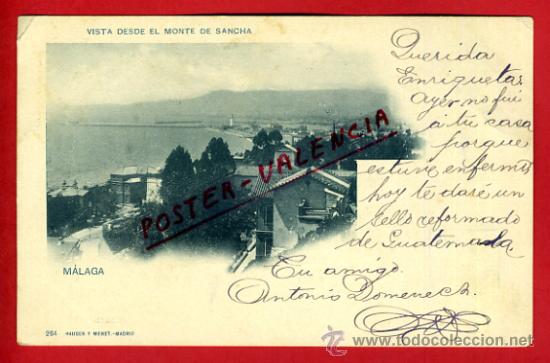 VISTA DESDE EL MONTE DE SANCHA
Querida
Enriqueta
Ayer no fui
á tu casa
porque
estuve enfermo
hoy te daré un
sello reformado
de Guatemala
Tu amigo.
Antonio Domenech
POSTER-VALENCIA
MÁLAGA
264 HAUSER Y MENET.-MADRID
todocoleccion.net